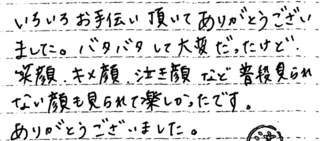 いろいろお手伝い頂いてありがとうござい
ました。バタバタして大変だったけど、
笑顔、キメ顔、泣き顔など普段見られ
ない顔も見られて楽しかったです。
ありがとうございました。